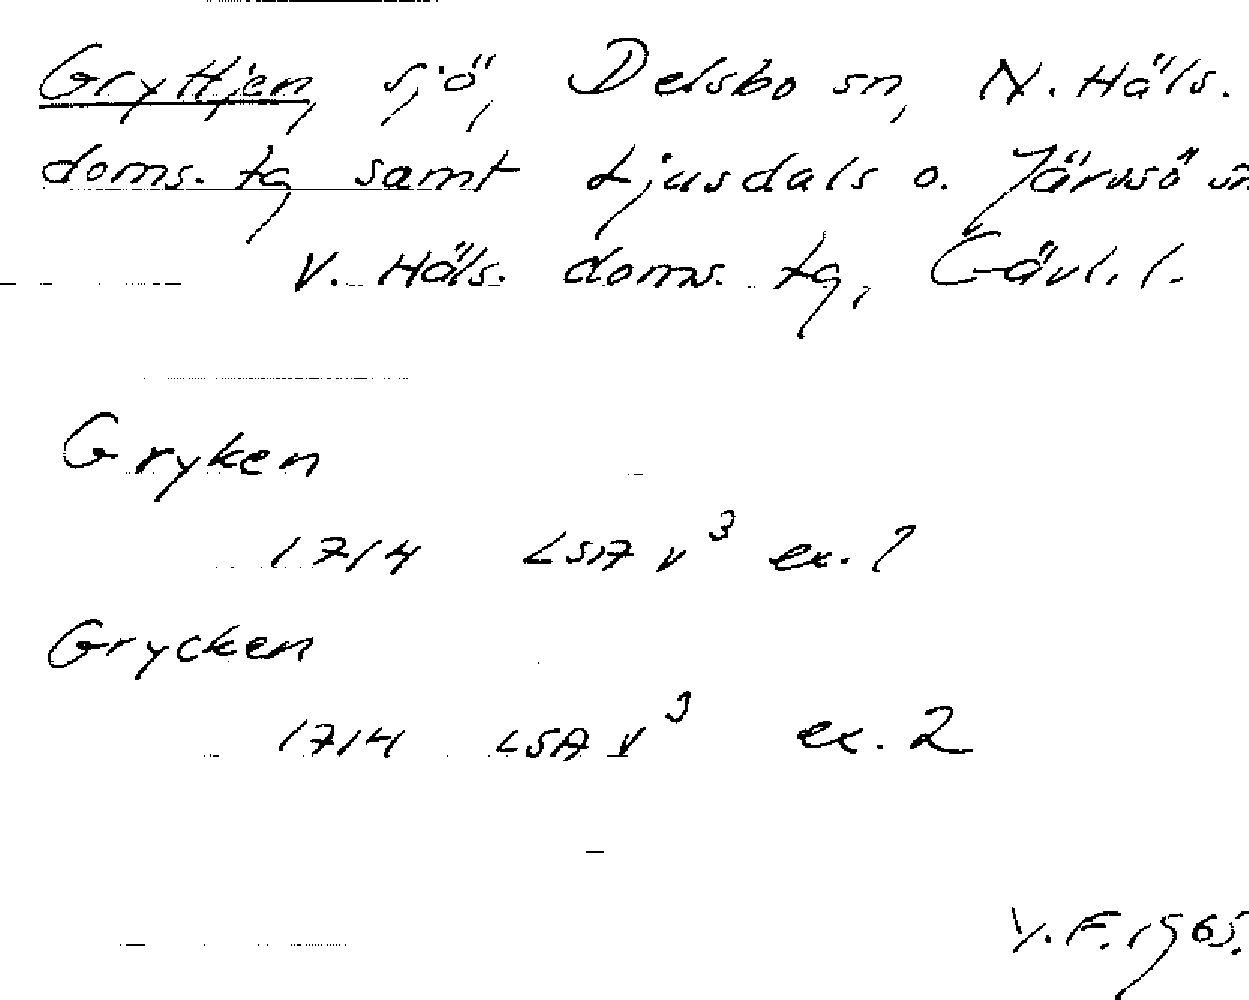 Gryttjen, sjö, Delsbo sn, N. Häls.
doms. tg samt Ljusdals o. Järvsö sn
V. Häls. doms. tg, Gävl. l.
Gryken
1714 LSA V³ ex. 1
Grycken
1714 LSA V³ ex. 2
V. F. 1965.